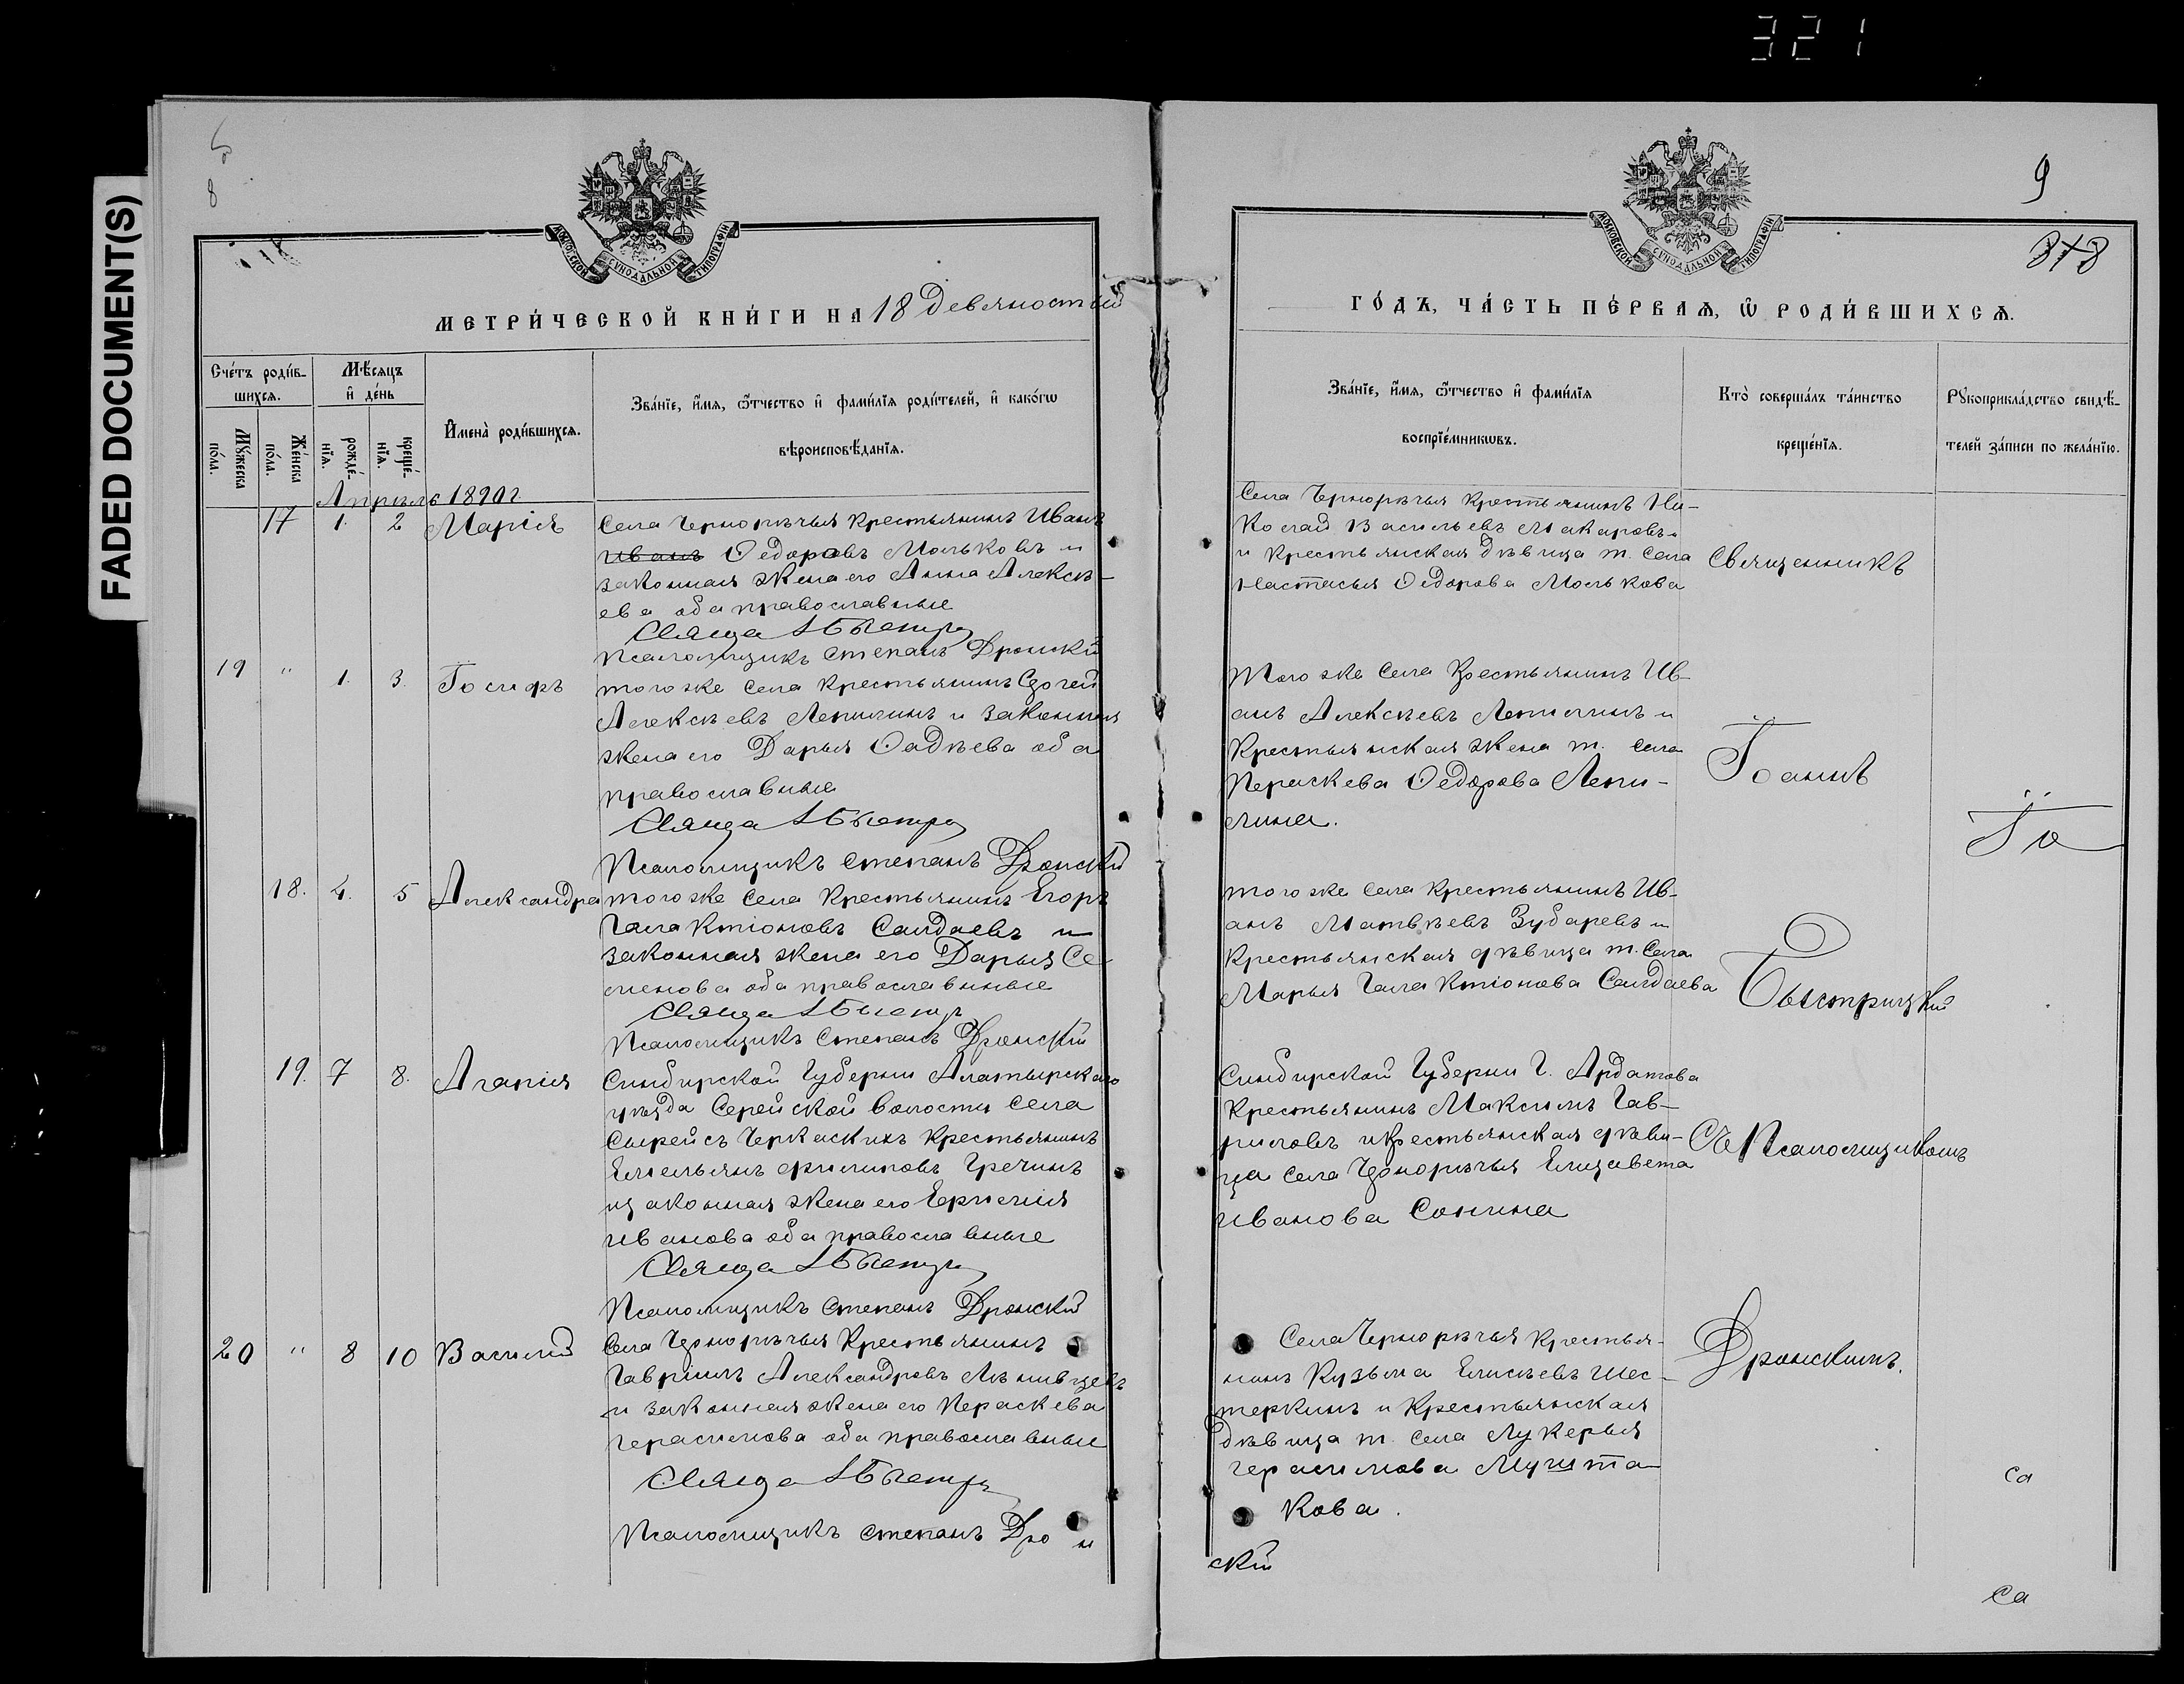 321
FADED DOCUMENT(S)
8
МОСКОВСКОЙ СѴНОДАЛЬНОЙ ТИПОГРАФІИ
МЕТРИ́ЧЕСКОЙ КНИ́ГИ НА 18 девяностый
Сче́тъ роди́в-
шихся.
Мѣ́сяцъ
и҆ де́нь
Мꙋ́жеска
по́ла.
Же́нска
по́ла.
рожде́-
нїѧ.
креще́-
нїѧ.
И҆мена̀ роди́вшихсѧ.
Зва́нїе, и҆́мѧ, ѻ҆́тчество и҆ фами́лїѧ роди́телей, и҆ како́гѡ
вѣроисповѣ́данїѧ.
Апрѣль 1890 г.
17 1. 2 Марія
Села Чернорѣчья Крестьянинъ Иванъ
Иванъ Ѳедоровъ Мольковъ и
законная жена его Анна Алексѣ-
ева оба православные
Псаломщикъ Степанъ Дронскій
19 " 1. 3. Іосифъ
того же Села Крестьянинъ Сергей
Алексѣевъ Лепилинъ и законная
жена его Дарья Ѳадѣева оба
православные
Псаломщикъ Степанъ Дронскій
18. 4. 5 Александра
того же Села Крестьянинъ Егоръ
Галактіоновъ Салдаевъ и
законная жена его Дарья Се-
менова оба православные
Псаломщикъ Степанъ Дронскій
19. 7 8. Агапія
Симбирской Губерніи Алатырскаго
уѣзда Серейской волости Села
Сырейсъ Черкаскихъ Крестьянинъ
Емельянъ Филиповъ Гречинъ
изаконная жена его Ефимія
Иванова оба православные
Псаломщикъ Степанъ Дронскій
20 " 8 10 Василій
Села Чернорѣчья Крестьянинъ
Гавріилъ Александровъ Лѣнивцевъ
и законная жена его Пераскева
Герасимова оба православные
Псаломщикъ Степанъ Дрон
9
878
МОСКОВСКОЙ СѴНОДАЛЬНОЙ ТИПОГРАФІИ
ГО́ДЪ, ЧА́СТЬ ПЕ́РВАѦ, Ѡ҆ РОДИ́ВШИХСѦ.
Зва́нїе, и҆́мѧ, ѻ҆́тчество и҆ фами́лїѧ
воспрїе́мникѡвъ.
Кто̀ соверша́лъ та́инство
креще́нїѧ.
Рꙋкоприкла́дство свидѣ́-
телей за́писи по жела́нїю.
Села Чернорѣчья Крестьянинъ Ни-
колай Васильевъ Макаровъ
и Крестьянская дѣвица т. Села
Настасья Ѳедорова Молькова
Священникъ
Того же Села Крестьянинъ Ив-
анъ Алексѣевъ Лепилинъ и
Крестьянская жена т. Села
Пераскева Ѳедорова Лепи-
лина.
Іоаннъ
Іо
того же Села Крестьянинъ Ив-
анъ Матвѣевъ Зубаревъ и
Крестьянская дѣвица т. Села
Марья Галактіонова Салдаева
Быстрицкій
Симбирской Губерніи Г. Ардатова
Крестьянинъ Максимъ Гав-
риловъ и Крестьянская дѣви-
ца Села Чернорѣчья Елизавета
Иванова Сонина
Съ Псаломщикомъ
Села Чернорѣчья Крестья-
нинъ Кузьма Елисѣевъ Шес-
теркинъ и Крестьянская
дѣвица т. Села Лукерья
Герасимова Мушта-
кова.
Дронскимъ.
са
скій
са